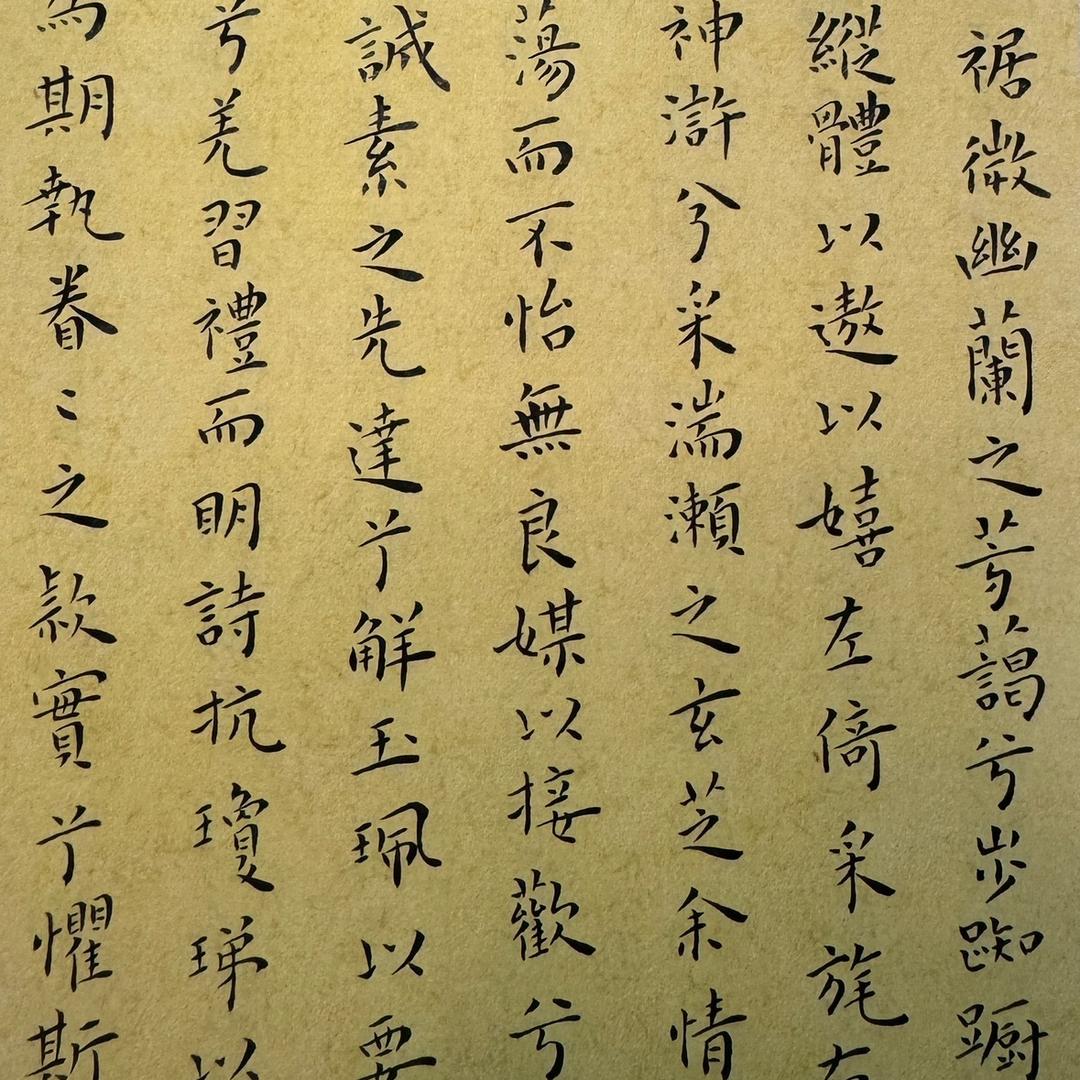 裾微幽蘭之芳藹兮步踟躕
縱體以遨以嬉左倚采旄右
神滸兮采湍瀨之玄芝余情
蕩而不怡無良媒以接歡兮
誠素之先達兮解玉珮以要
兮羌習禮而明詩抗瓊珶以
為期執眷〻之款實兮懼斯